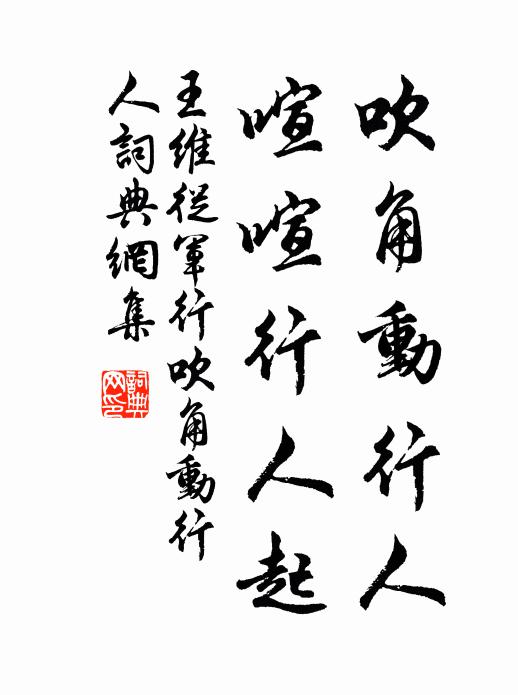 吹角動行人
喧喧行人起
王維從軍行吹角動行
人詞典網集
詞典
网印